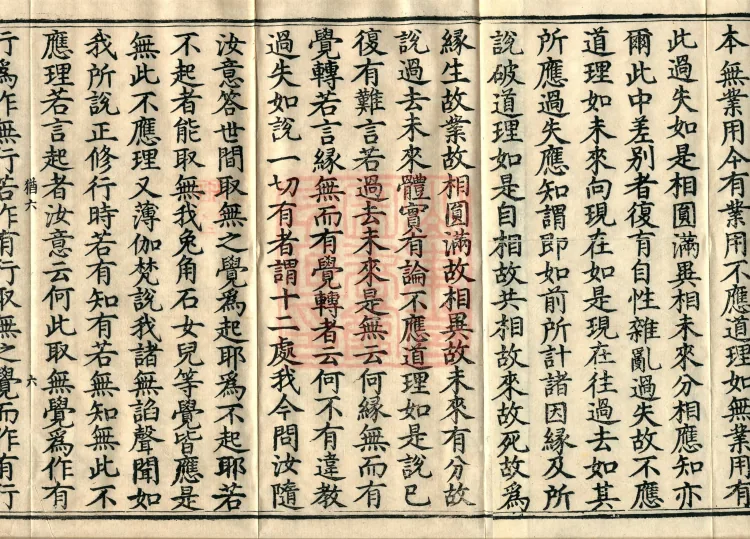 本無業用今有業用不應道理如無業用有
此過失如是相圓滿異相未來分相應知亦
爾此中差別者復有自性雜亂過失故不應
道理如未來向現在如是現在往過去如其
所應過失應知謂即如前所計諸因緣及所
說破道理如是自相故共相故來故死故為
緣生故業故相圓滿故相異故未來有分故
說過去未來體實有論不應道理如是說已
復有難言若過去未來是無云何緣無而有
覺轉若言緣無而有覺轉者云何不有違教
過失如說一切有者謂十二處我今問汝隨
汝意答世間取無之覺為起耶為不起耶若
不起者能取無我兔角石女兒等覺皆應是
無此不應理又薄伽梵說我諸無諂聲聞如
我所說正修行時若有知有若無知無此不
應理若言起者汝意云何此取無覺為作有
猶六 六
行為作無行若作有行取無之覺而作有行